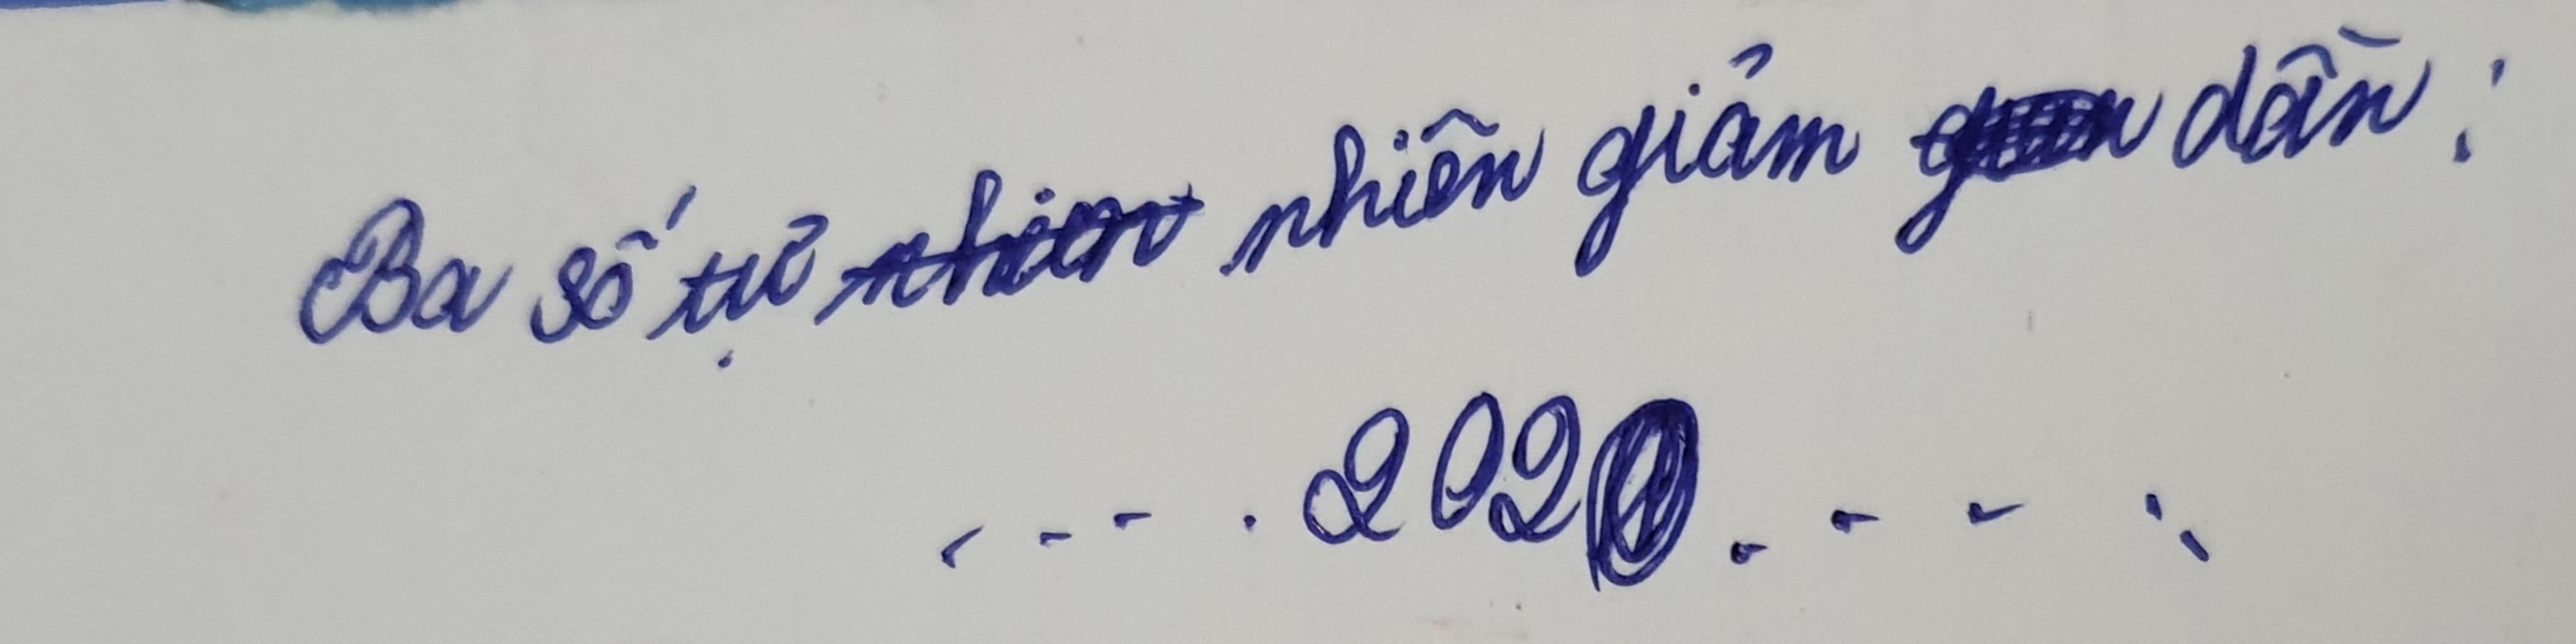 Ba số tự nhiên giảm dần:
.... 2020 ....